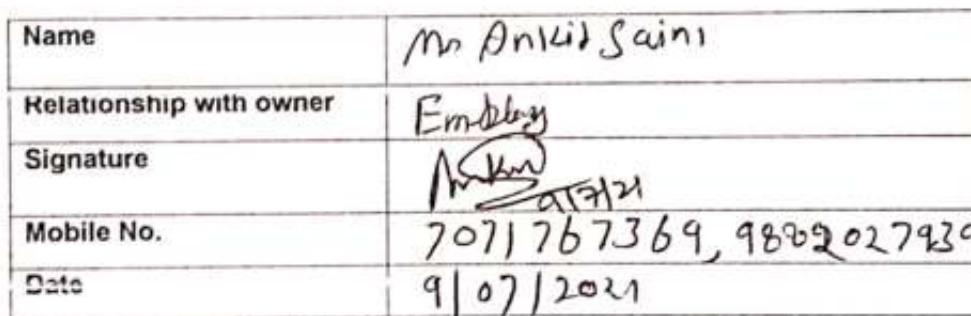 Name Mr Ankit Saini
Relationship with owner Emploey
Signature Ankit
9/7/21
Mobile No. 7071767369, 9802027939
Date 9/07/2021